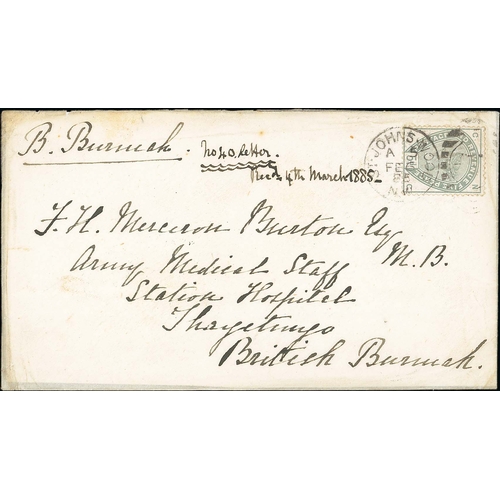 B. Burmah.
No 40, letter.
Recd 4th March 1885
ST JOHNS
A
FE
N
F. H. Merceron Burton Esq
M. B.
Army Medical Staff
Station Hospital
Thayetmyo
British Burmah.